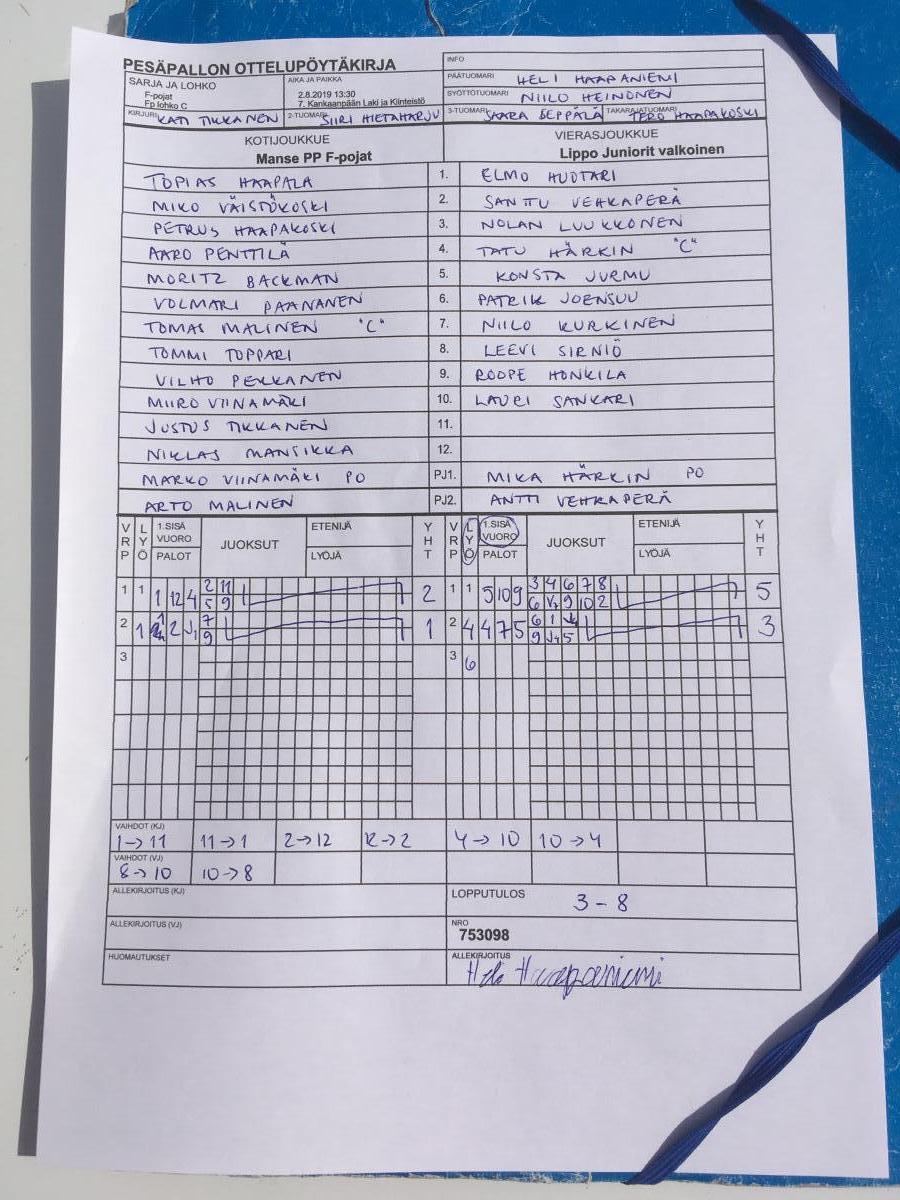 PESÄPALLON OTTELUPÖYTÄKIRJA
INFO
SARJA JA LOHKO
F-pojat
Fp lohko C
AIKA JA PAIKKA
2.8.2019 13:30
7. Kankaanpään Laki ja Kiinteistö
PÄÄTUOMARI HELI HAAPANIEMI
SYÖTTÖTUOMARI NIILO HEINONEN
KIRJURI KATI TIKKANEN 2-TUOMARI SIIRI HIETAHARJU 3-TUOMARI SAARA SEPPÄLÄ TAKARAJATUOMARI TERO HAAPAKOSKI
KOTIJOUKKUE VIERASJOUKKUE
Manse PP F-pojat Lippo Juniorit valkoinen
TOPIAS HAAPALA 1. ELMO HUOTARI
MIKO VÄISTÖKOSKI 2. SANTTU VEHKAPERÄ
PETRUS HAAPAKOSKI 3. NOLAN LUUKKONEN
AARO PENTTILÄ 4. TATU HÄRKIN "C"
MORITZ BACKMAN 5. KONSTA JURMU
VOLMARI PAANANEN 6. PATRIK JOENSUU
TOMAS MALINEN "C" 7. NIILO KURKINEN
TOMMI TOPPARI 8. LEEVI SIRNIÖ
VILHO PEKKANEN 9. ROOPE HONKILA
MIIRO VIINAMÄKI 10. LAURI SANKARI
JUSTUS TIKKANEN 11.
NIKLAS MANSIKKA 12.
MARKO VIINAMÄKI PO PJ1. MIKA HÄRKIN PO
ARTO MALINEN PJ2. ANTTI VEHKAPERÄ
VRP LYÖ 1.SISÄ VUORO PALOT JUOKSUT ETENIJÄ LYÖJÄ YHT VRP LYÖ 1.SISÄ VUORO PALOT JUOKSUT ETENIJÄ LYÖJÄ YHT
1 1 1 12 4 2 11 2 1 1 5 10 9 3 4 6 7 8 5
5 9 6 9 10 2
2 1 2 7 1 2 4 4 7 5 6 1 3
9 9 5
3 3 6
VAIHDOT (KJ)
1→11 11→1 2→12 12→2 4→10 10→4
VAIHDOT (VJ)
8→10 10→8
ALLEKIRJOITUS (KJ) LOPPUTULOS 3-8
ALLEKIRJOITUS (VJ) NRO
753098
HUOMAUTUKSET ALLEKIRJOITUS
Haapaniemi